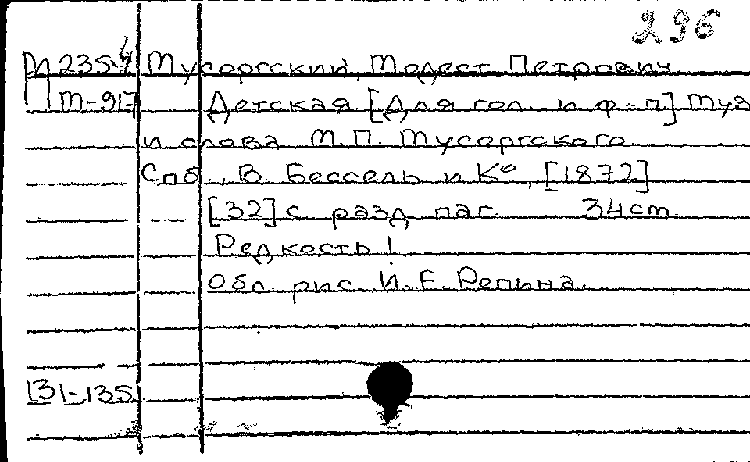 296
М 235-4 Мусоргский, Модест Петрович
М-917 Детская [Для гол. и ф-п] Муз
и слова М.П. Мусоргского.
Спб., В. Бессель и Кº, [1872]
[32] с разд. паг. 34 cm.
Редкость!
Обл. рис. И. Е. Репина.
131-135